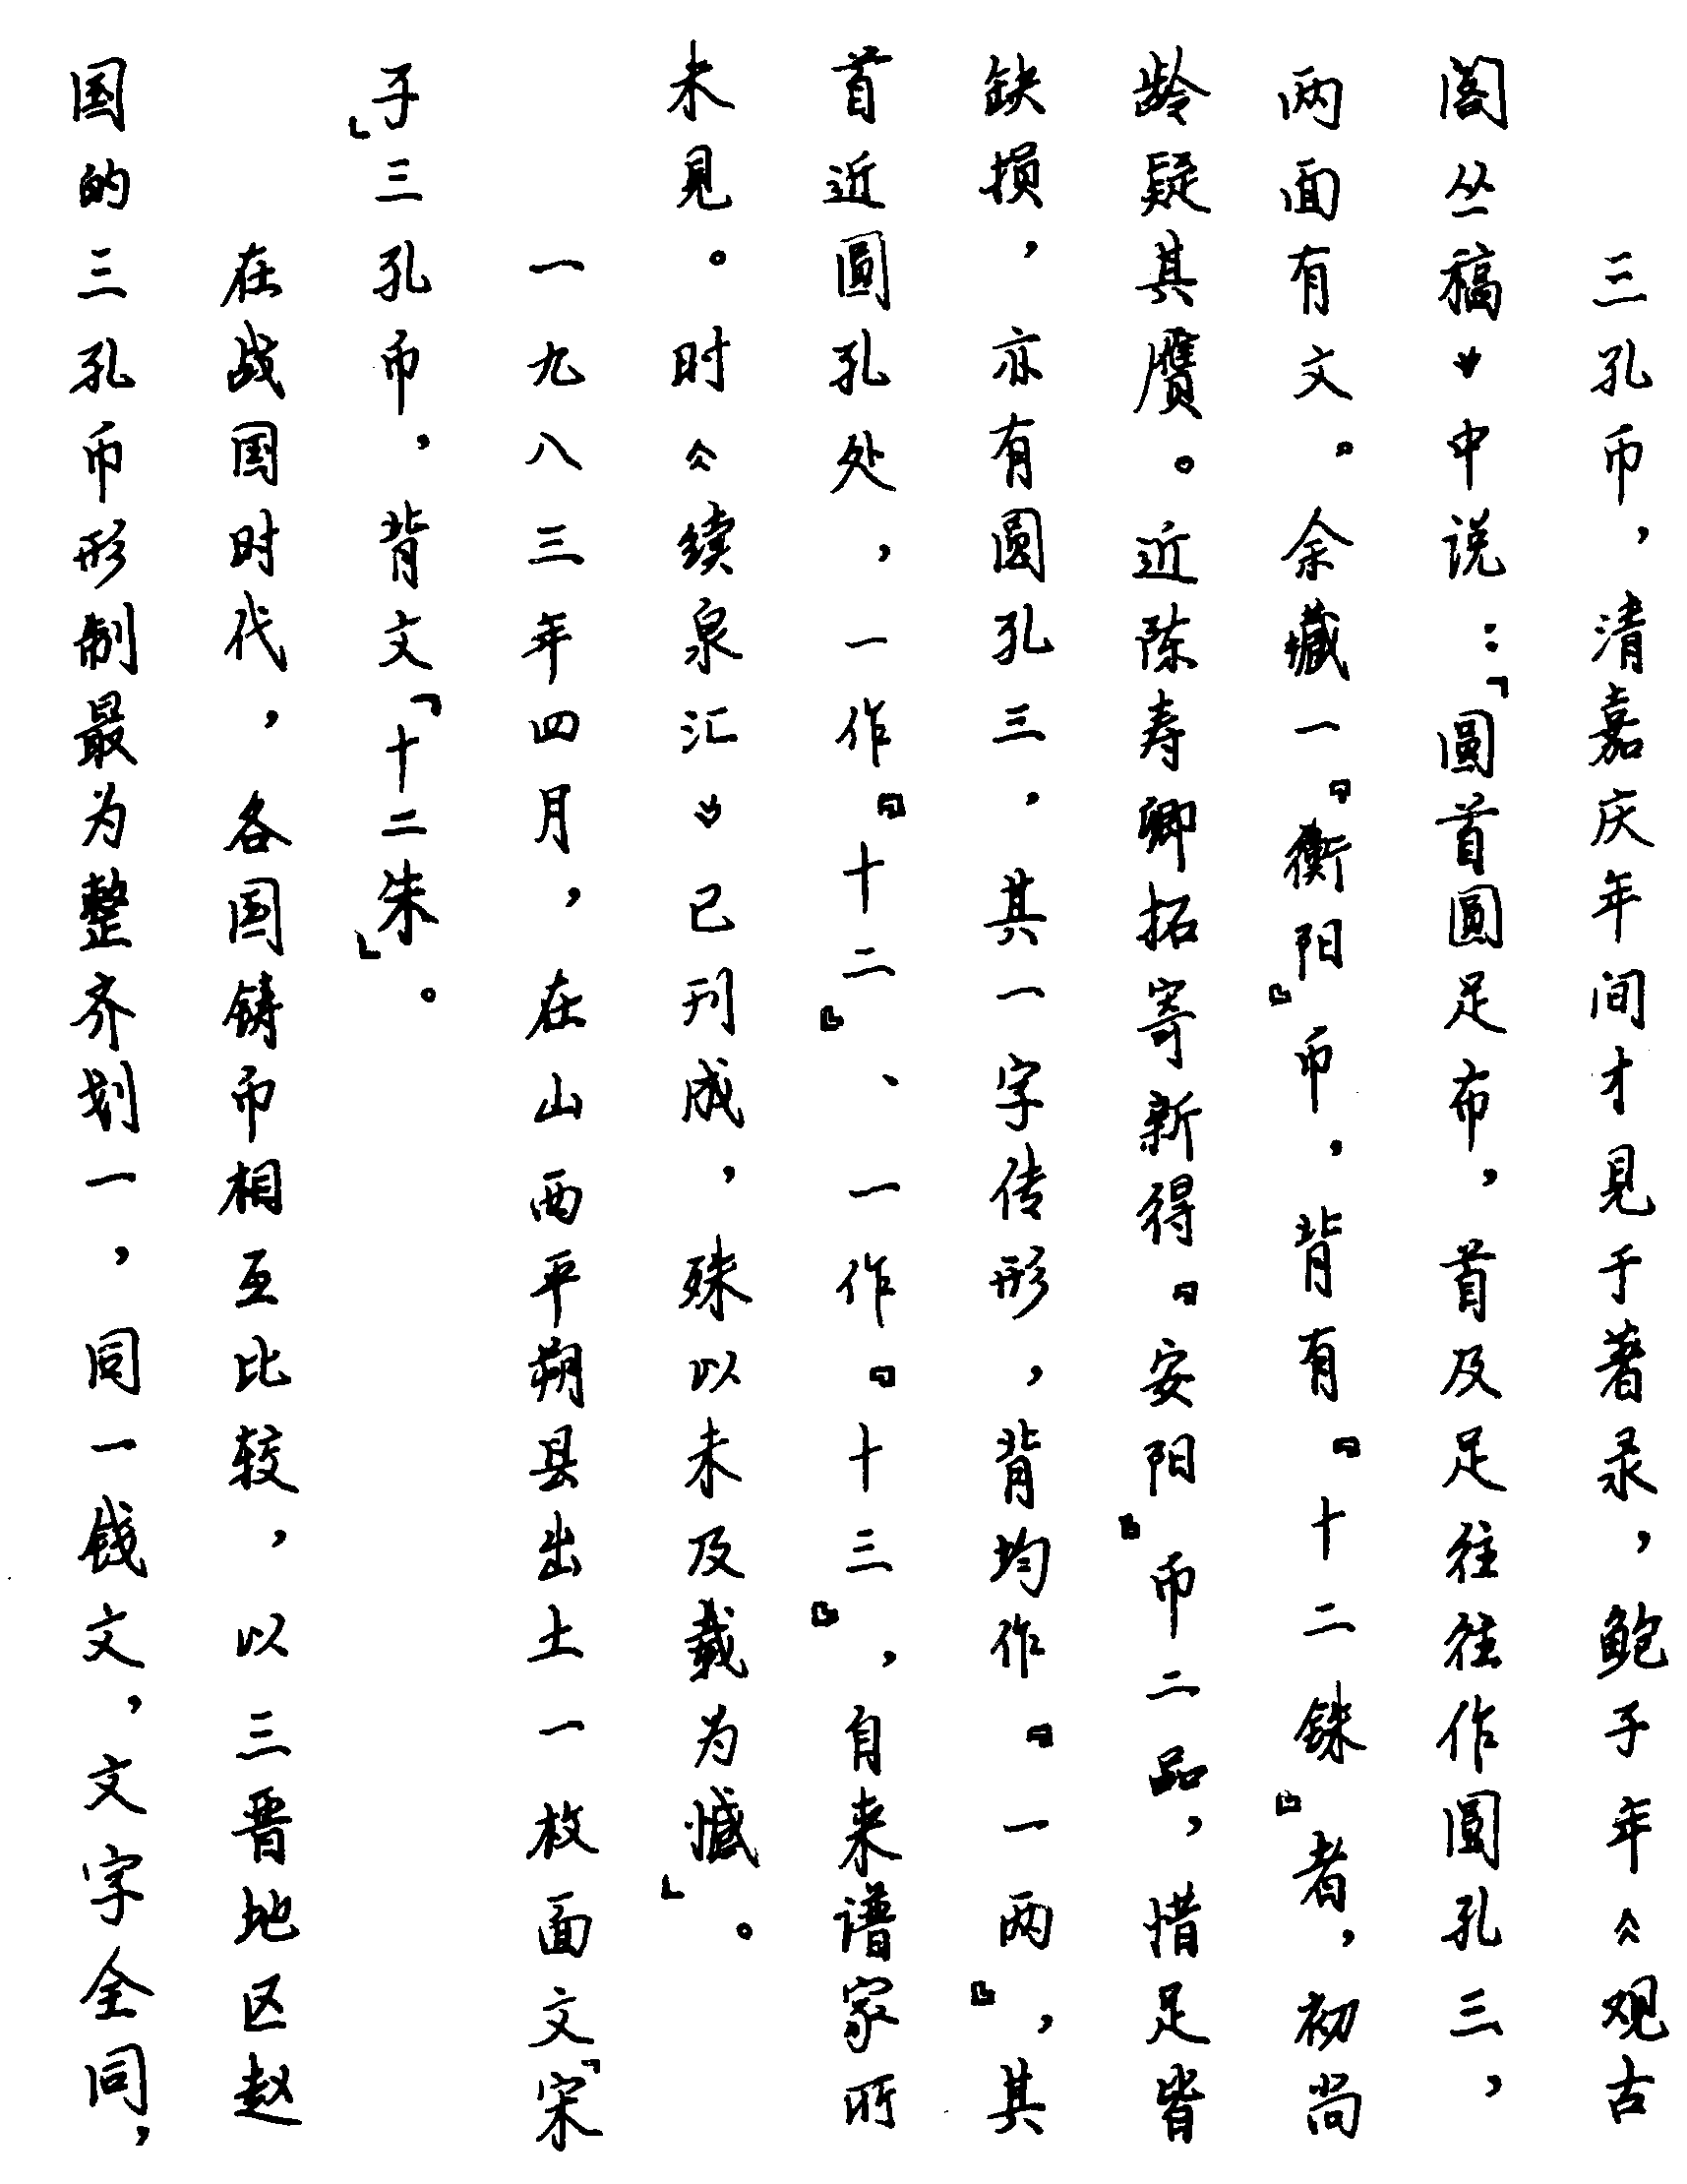 三孔币，清嘉庆年间才見于著录，鲍子年《观古
阁丛稿》中说：「圓首圓足布，首及足往往作圓孔三，
两面有文。余藏一『衡阳』币，背有『十二銖』者，初尚
龄疑其赝。近陈寿卿拓寄新得『安阳』币二品，惜足皆
缺损，亦有圓孔三，其一字传形，背均作『一两』，其
首近圓孔处，一作『十二』、一作『十三』，自来谱家所
未見。时《续泉汇》已刊成，殊以未及载为憾」。
一九八三年四月，在山西平朔县出土一枚面文「宋
子」三孔币，背文「十二朱」。
在战国时代，各国铸币相互比较，以三晋地区赵
国的三孔币形制最为整齐划一，同一钱文，文字全同，